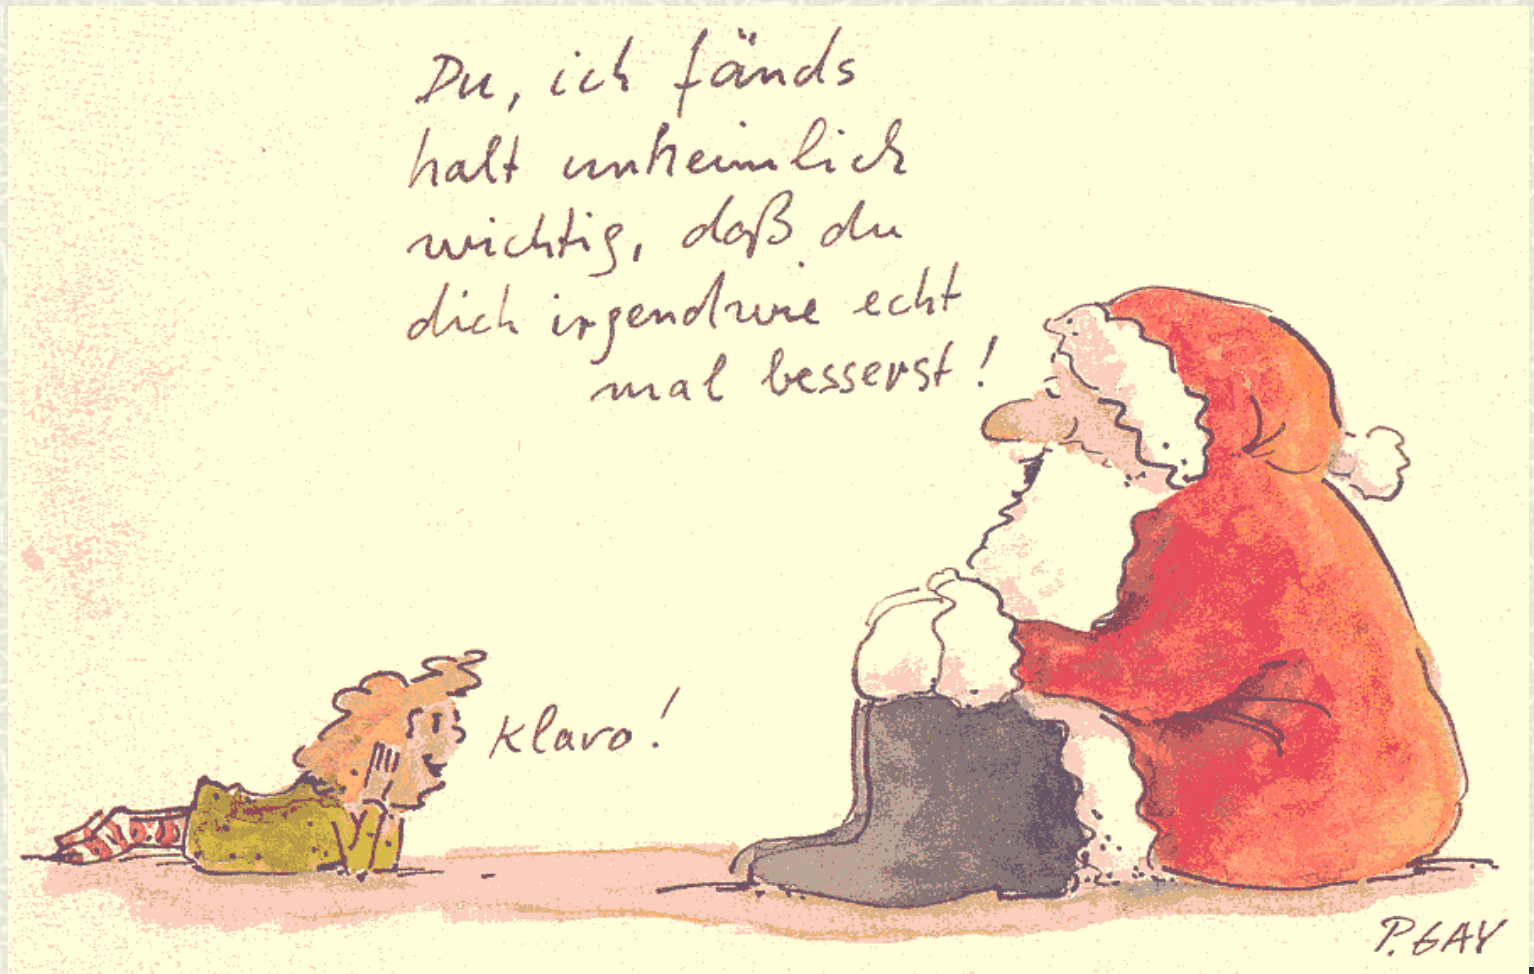 Du, ich fänds
halt unheimlich
wichtig, daß du
dich irgendwie echt
mal besserst!
Klaro!
P. GAY